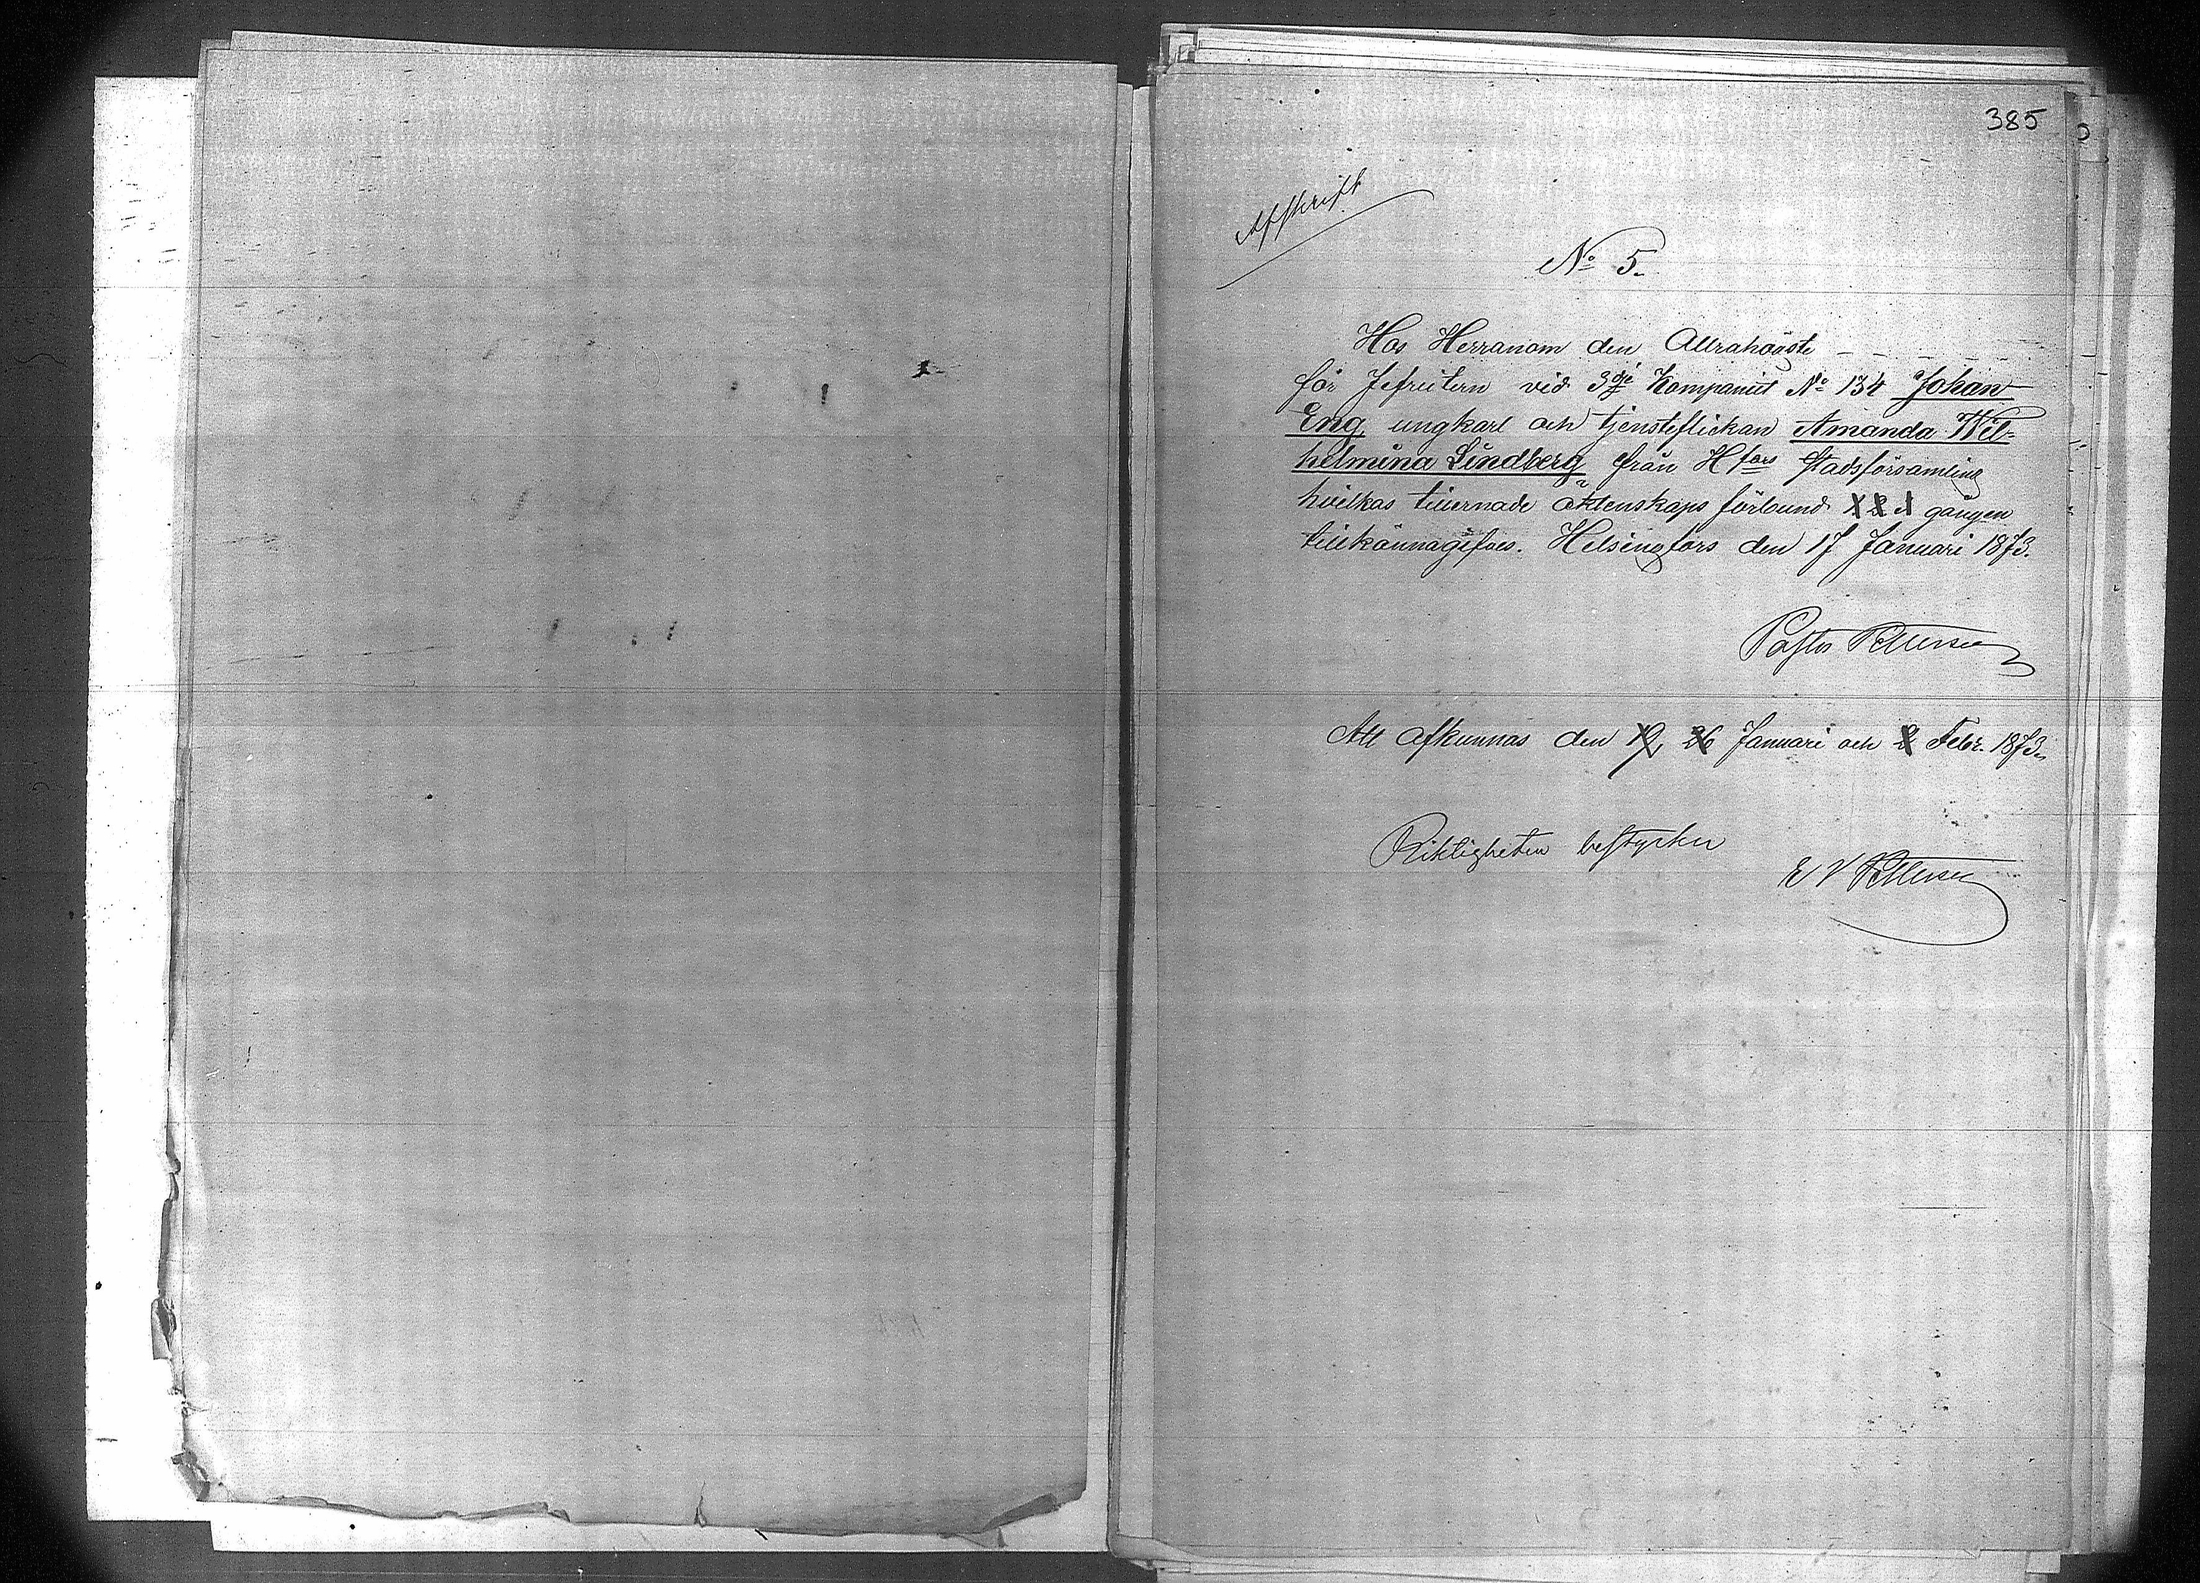 385
Afskrift
No 5.
Hos Herranom den Allrahögste - - - - - -
för Jefreitern vid 3dje Kompaniet No 134 Johan
Eng, ungkarl och tjensteflickan Amanda Wil-
helmina Lindberg från Hfors Stadsförsamling
hvilkas tillernade äktenskaps förbund gången
tillkännagifves. Helsingfors den 17 Januari 1873.
Pastor Pettersson
Att afkunnas den 19, 26 Januari och 2 Febr. 1873.
Riktigheten bestyrker
E V Pettersson